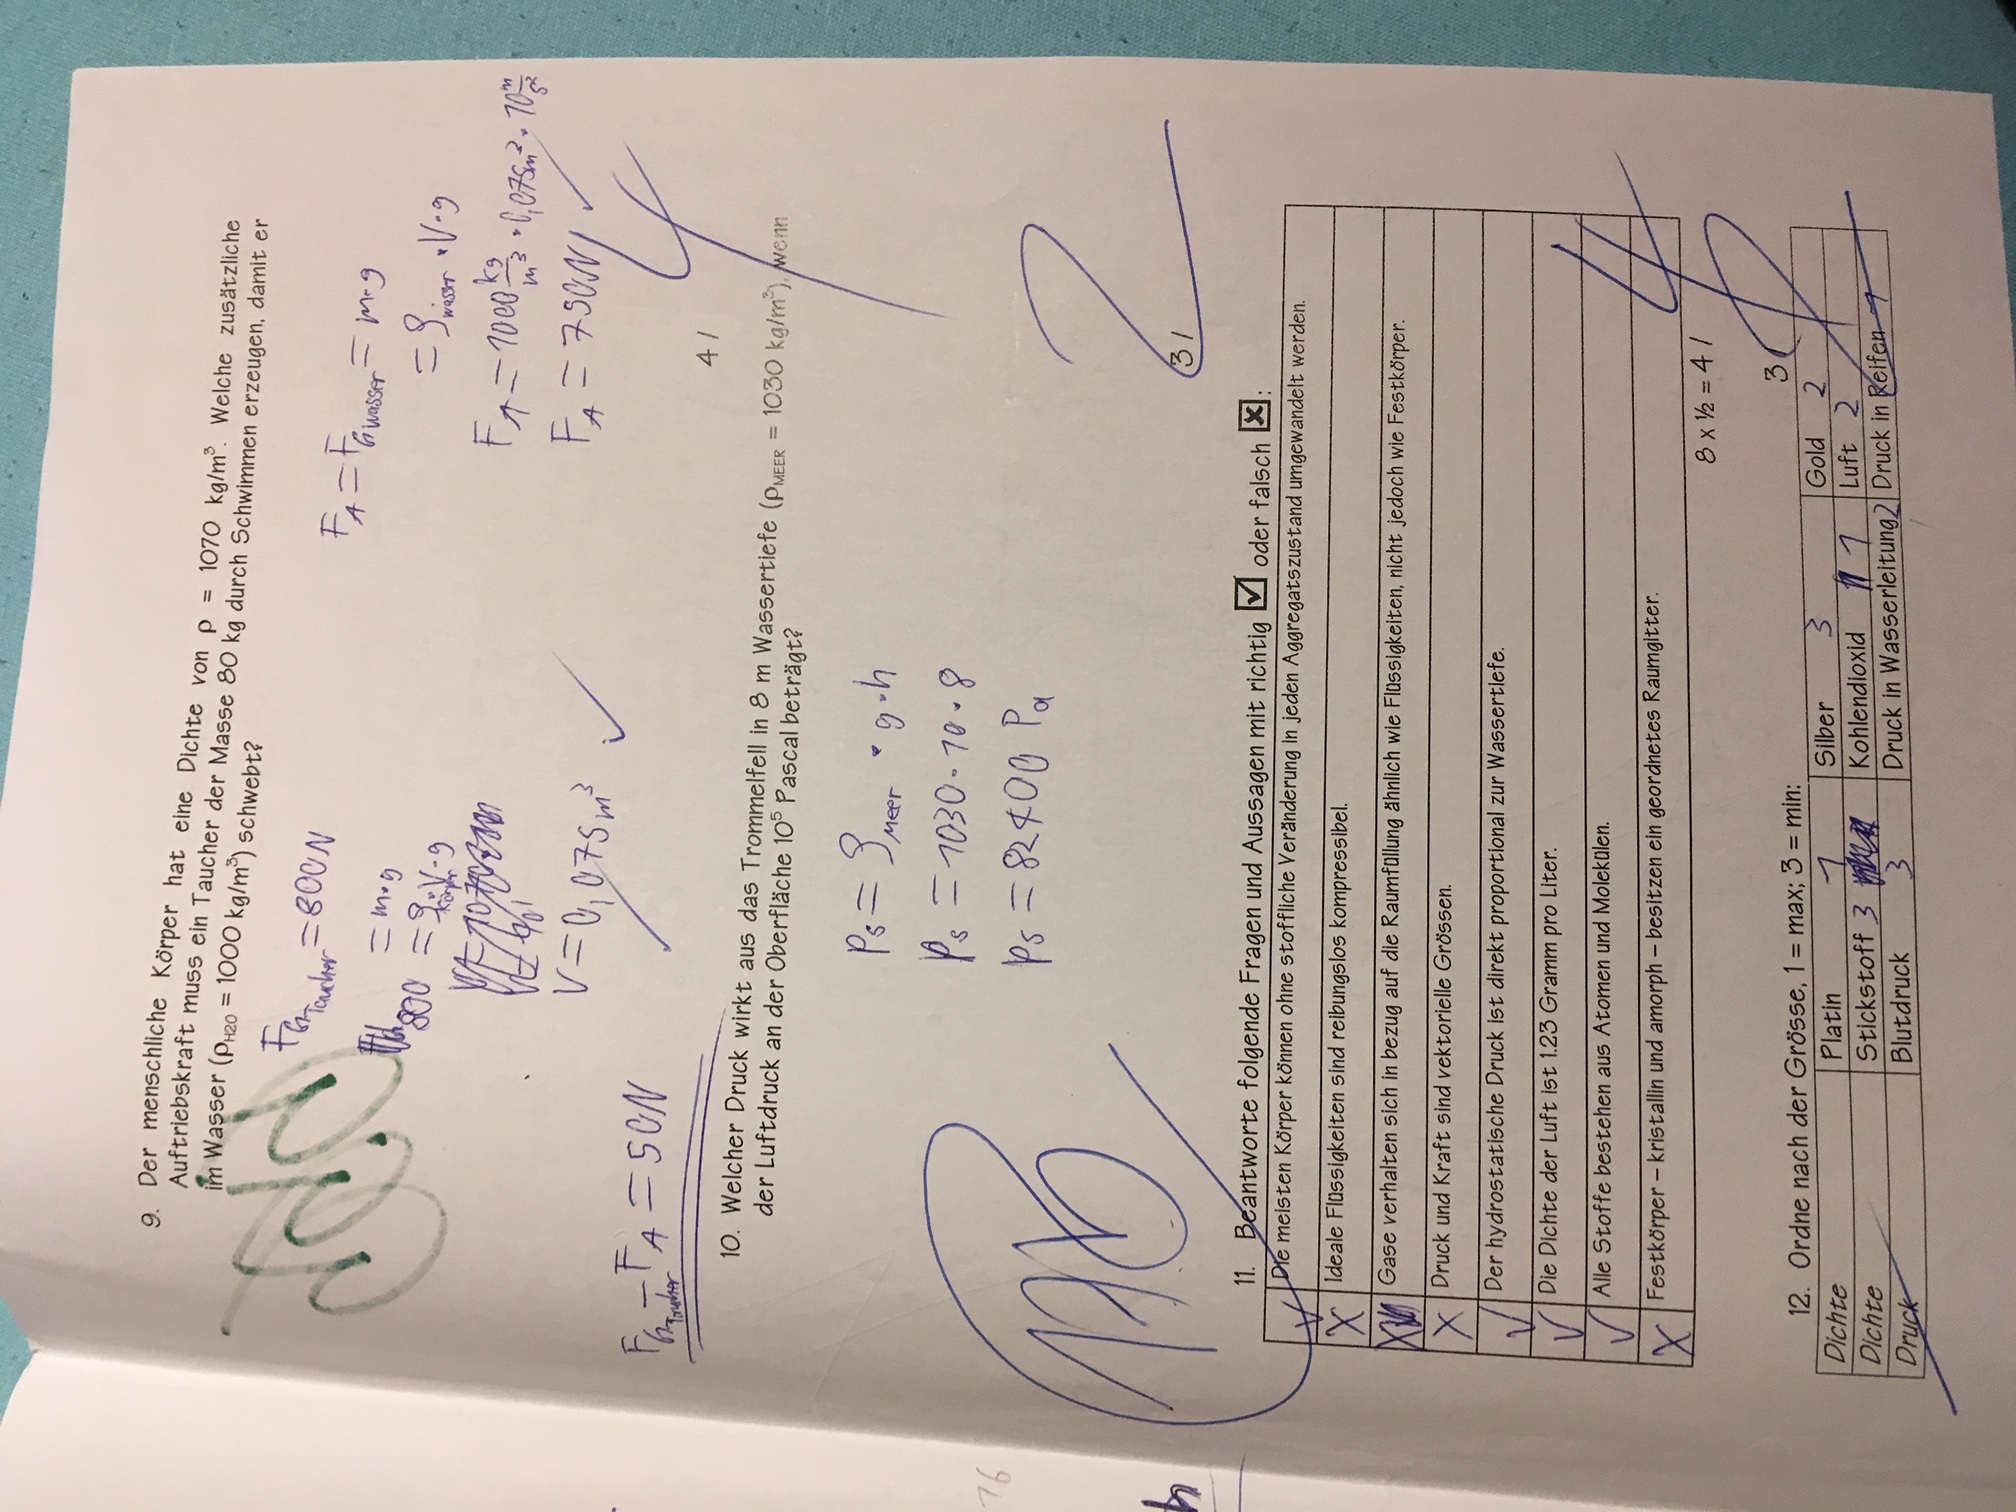 9. Der menschliche Körper hat eine Dichte von ρ = 1070 kg/m³. Welche zusätzliche
Auftriebskraft muss ein Taucher der Masse 80 kg durch Schwimmen erzeugen, damit er
im Wasser (ρH2O = 1000 kg/m³) schwebt?
FG Taucher = 800N
= m·g
800 = ρKörper·V·g
V = 0,075m³
FG Taucher - FA = 50N
FA = FG wasser = m·g
= ρwasser · V·g
FA = 1000 kg/m³ · 0,075m³ · 10 m/s²
FA = 750N
4
4 /
10. Welcher Druck wirkt aus das Trommelfell in 8 m Wassertiefe (ρMEER = 1030 kg/m³), wenn
der Luftdruck an der Oberfläche 10⁵ Pascal beträgt?
ps = ρMeer · g·h
ps = 1030·10·8
ps = 82400 Pa
16
2
3 /
11. Beantworte folgende Fragen und Aussagen mit richtig ☑ oder falsch ☒:
✓ Die meisten Körper können ohne stoffliche Veränderung in jeden Aggregatszustand umgewandelt werden.
X Ideale Flüssigkeiten sind reibungslos kompressibel.
X Gase verhalten sich in bezug auf die Raumfüllung ähnlich wie Flüssigkeiten, nicht jedoch wie Festkörper.
X Druck und Kraft sind vektorielle Grössen.
✓ Der hydrostatische Druck ist direkt proportional zur Wassertiefe.
✓ Die Dichte der Luft ist 1.23 Gramm pro Liter.
✓ Alle Stoffe bestehen aus Atomen und Molekülen.
X Festkörper – kristallin und amorph – besitzen ein geordnetes Raumgitter.
4
8 x ½ = 4 /
12. Ordne nach der Grösse, 1 = max; 3 = min:
3
2
Dichte Platin 1 Silber 3 Gold 2
Dichte Stickstoff 3 Kohlendioxid 1 Luft 2
Druck Blutdruck 3 Druck in Wasserleitung 2 Druck in Reifen 1